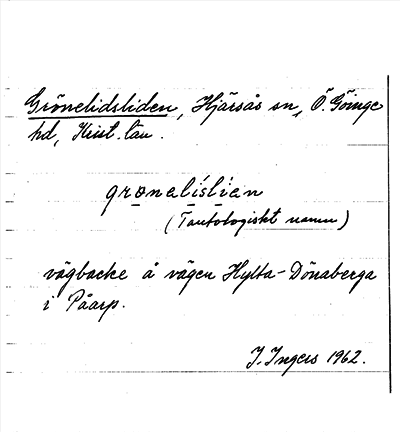 Grönelidsliden, Hjärsås sn, Ö. Göinge
hd, Krist. län.
grønelislien
(Tautologiskt namn)
vägbacke å vägen Hylta-Dönaberga
i Påarp.
I. Ingers 1962.